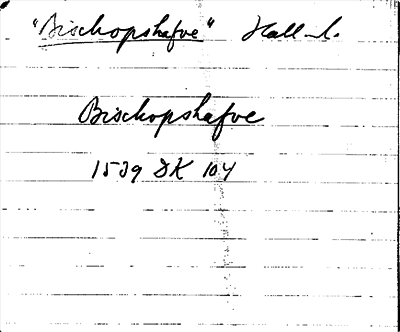 "Bischopshafve" Hall-l.
Bischopshafve
1539 DK 104